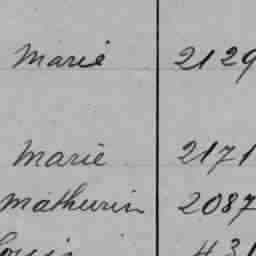 Marie 2129
Marie 2171
Mathurin 2087
Louis 431